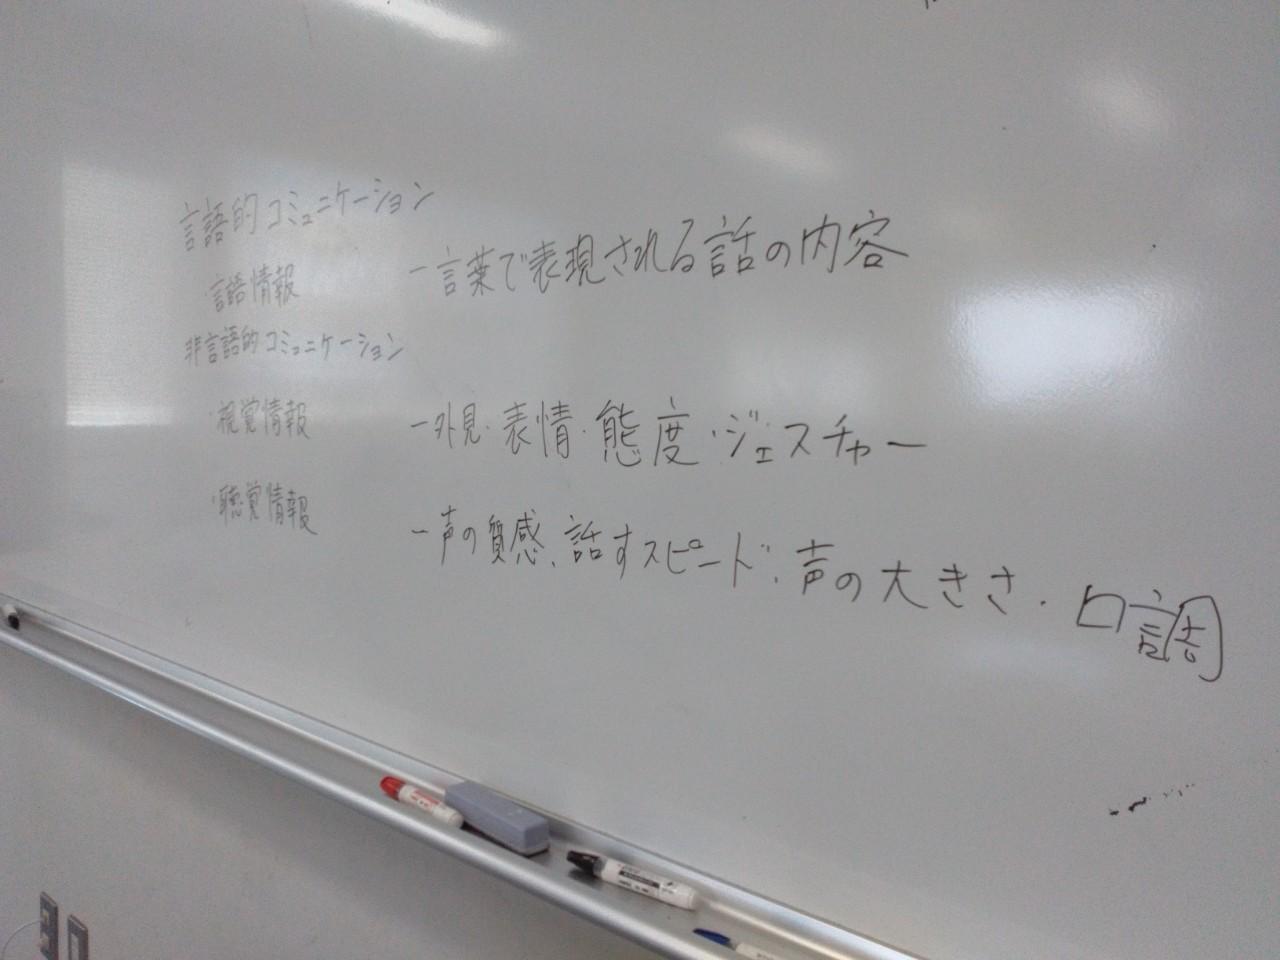 言語的コミュニケーション
言語情報 ー言葉で表現される話の内容
非言語的コミュニケーション
・視覚情報 ー外見・表情・態度・ジェスチャー
・聴覚情報 ー声の質感、話すスピード、声の大きさ・口調